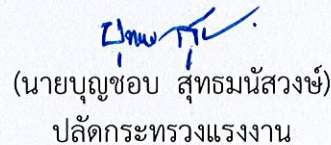 (นายบุญชอบ สุทธมนัสวงษ์)
ปลัดกระทรวงแรงงาน